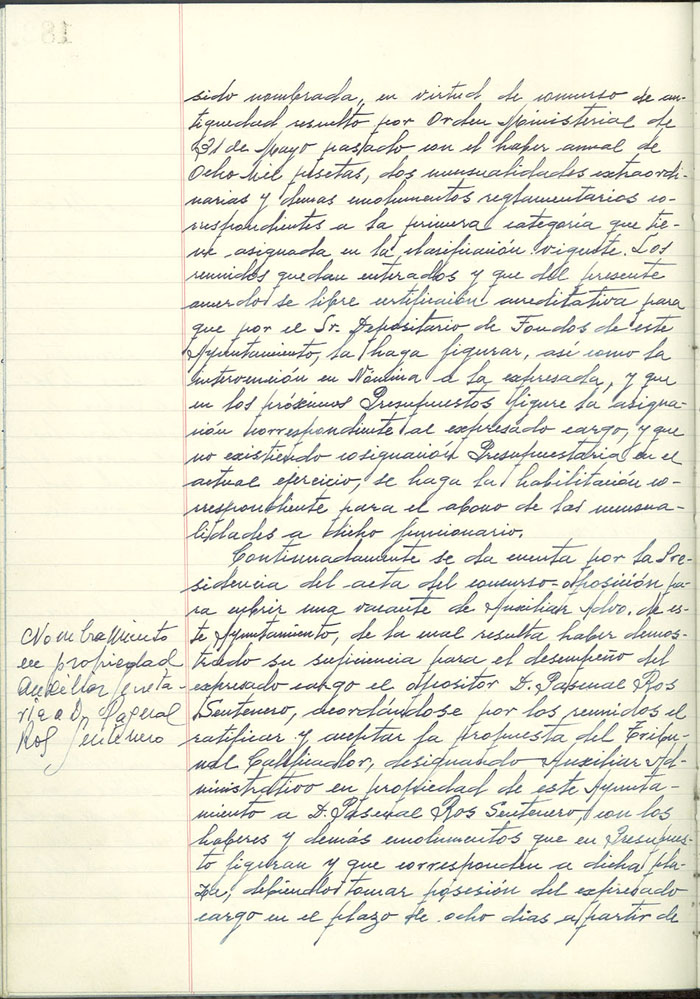 sido nombrada, en virtud de concurso de an-
tiguedad resuelto por Orden Ministerial de
31 de Mayo pasado con el haber anual de
Ocho mil pesetas, dos mensualidades extraordi-
narias y demas emolumentos reglamentarios co-
rrespondientes a la primera categoría que tie-
ne asignada en la clasificación vigente. Los
reunidos quedan enterados y que del presente
acuerdo se libre certificación acreditativa para
que por el Sr. Depositario de Fondos de este
Ayuntamiento, la haga figurar, así como la
intervención en Nómina a la expresada, y que
en los próximos Presupuestos figure la asigna-
ción correspondiente al expresado cargo, y que
no existiendo cosignación Presupuestaria en el
actual ejercicio, se haga la habilitación co-
rrespondiente para el abono de las mensua-
lidades a dicho funcionario.
Continuadamente se da cuenta por la Pre-
sidencia del acta del concurso-oposición pa-
ra cubrir una vacante de Auxiliar Advo. de es-
te Ayuntamiento, de la cual resulta haber demos-
trado su suficiencia para el desempeño del
expresado cargo el opositor D. Pascual Ros
Sentenero, acordándose por los reunidos el
ratificar y aceptar la propuesta del Tribu-
nal Calificador, designando Auxiliar Ad-
ministrativo en propiedad de este Ayunta-
miento a D. Pascual Ros Sentenero, con los
haberes y demás emolumentos que en Presupues-
to figuran y que corresponden a dicha pla-
za, debiendo tomar posesión del expresado
cargo en el plazo de ocho dias a partir de
Nombramiento
en propiedad
Auxiliar Secreta-
ria a D. Pascual
Ros Sentenero